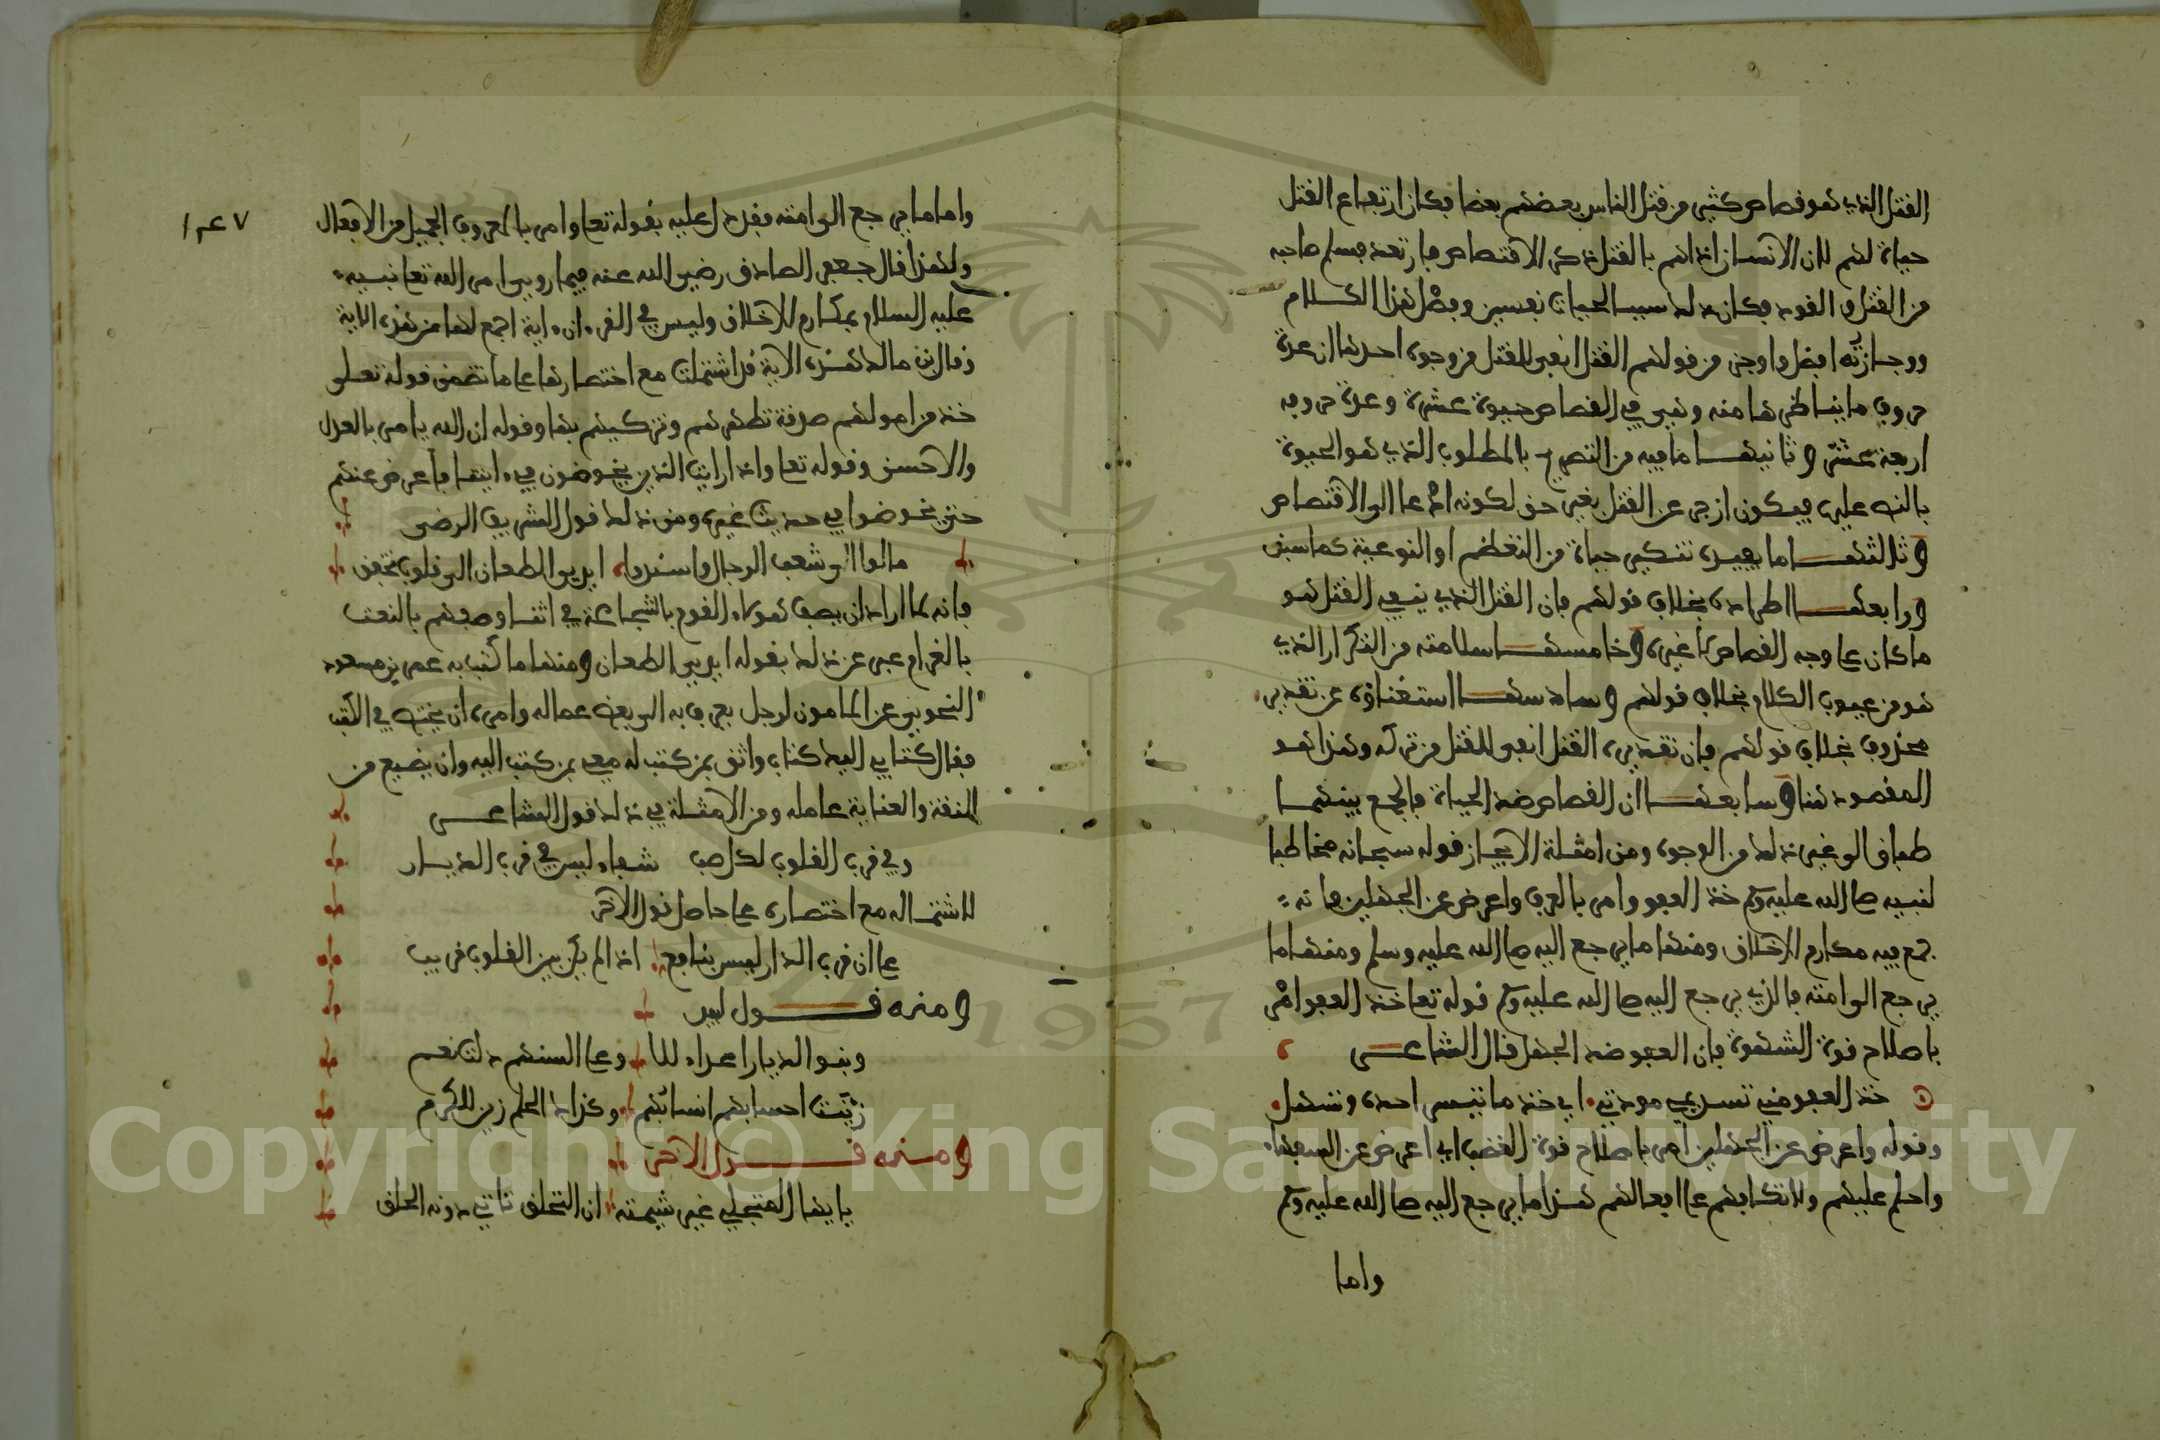 القتل الذي هو قصاص كثير من قتل الناس بعضهم بعضا فكان ارتفاع القتل
حياة لهم لان الانسان اذا هم بالقتل ذكر الاقتصاص فارتعد فسلم صاحبه
من القتل و القود فكان ذلك سبب الحيات نفسين وفضل هذا الكلام
ووجازته افضل واوجز من قولهم القتل انفى للقتل من وجوه احدها ان عدة
حروف ما يناظرها منه وهي في القصاص حيوة عشرة وعدة حروفه
اربعة عشر و ثانيها ما فيه من التصريح بالمطلوب الذي هو الحيوة
بالنص عليها فيكون ازجر عن القتل بغير حق لكونه ادعا الى الاقتصاص
و ثالثها ما يفيده تنكير حياة من التعظيم او النوعية كما سبق
و رابعها اطراده بخلاف قولهم فان القتل الذي ينفي القتل هو
ما كان على وجه القصاص لا غيره و خامسها سلامته من التكرار الذي
هو من عيوب الكلام بخلاف قولهم و سادسها استغناؤه عن تقدير
محذوف بخلاف قولهم فان تقديره القتل انفى للقتل من تركه وهذا هو
المقصود هنا و سابعها ان القصاص ضد الحياة فالجمع بينهما
طباق الى غير ذلك من الوجوه ومن امثلة الايجاز قوله سبحانه مخاطبا
لنبيه صلى الله عليه وسلم خذ العفو وامر بالعرف واعرض عن الجهلين فانه
جمع فيه مكارم الاخلاق ومنها ما يرجع اليه صلى الله عليه وسلم ومنها ما
يرجع الى امته فالذي يرجع اليه صلى الله عليه وسلم قوله تعا خذ العفو امر
باصلاح قوة الشهوة فان العفو ضد الجهل قال الشاعر
خذ العفو مني تستديمي مودتي اي خذ ما تيسر اخذه وتسهل
وقوله واعرض عن الجهلين امر باصلاح قوة الغضب اي اعرض عن السفهاء
واحلم عليهم ولا تكافهم على افعالهم هذا ما يرجع اليه صلى الله عليه وسلم
واما
١٤٧
واما ما يرجع الى امته فقد دل عليه بقوله تعا وامر بالعروف الجميل من الافعال
ولهذا قال جعفر الصادق رضي الله عنه فيما روي امر الله تعا نبيه
عليه السلام بمكارم الاخلاق وليس في القرءان ءاية اجمع لها من هذه الاية
وقال بن مالك هذه الاية قد اشتملت مع اختصارها على ما تضمن قوله تعلى
خذ من امولهم صدقة تطهرهم وتزكيهم بها وقوله ان الله يامر بالعدل
والاحسن وقوله تعا واذا رايت الذين يخوضون في ءايتنا فاعرض عنهم
حتى يخوضوا في حديث غيره ومن ذلك قول الشريف الرضي
مالوا الى شعب الرحال واسندوا ايدي الطعان الى قلوب تخفق
فانه لما اراد ان يصف هؤلاء القوم بالشجاعة في اثنا وصفهم بالنعت
بالغرام عبر عن ذلك بقوله ايدي الطعان ومنها ما كتب به عمر بن مسعود
النحوي عن المامون لرجل يعرف به الى بعض عماله وامره ان يختصر في الكتب
فقال كتابي اليك كتاب واثق بمن كتب له معنى بمن كتب اليه وان يضيع من
الثقة والعناية عامله ومن الامثلة في ذلك قول الشاعر
وفي قرب القلوب لكل صب شفاء ليس في قرب الديار
لاشتماله مع اختصاره على حاصل قول الاخر
على ان قرب الدار ليس بنافع اذا لم يكن بين القلوب قريب
ومنه قول لبيد
وبنو الديار اعداء للا وعلى السنهم دلت نعم
زينت احسابهم انسابهم وكذاك الحلم زين للكرم
ومنه قول الاخر
يا ايها المتحلي غير شيمته ان التخلق تاتي دونه الخلق
Copyright © King Saud University
1957